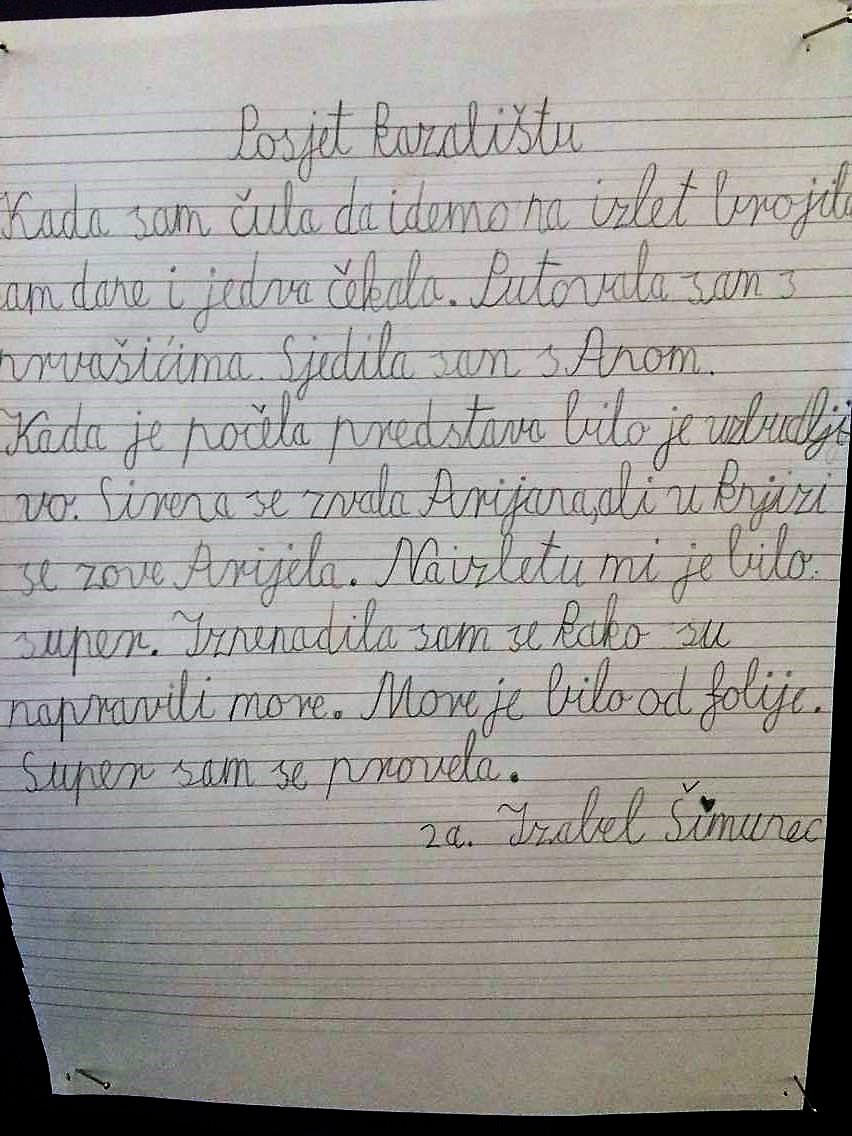 Posjet kazalištu
Kada sam čula da idemo na izlet brojila
am dane i jedva čekala. Putovala sam s
prvašićima. Sjedila sam s Anom.
Kada je počela predstava bilo je uzbudlji
vo. Sirena se zvala Arijana, ali u knjizi
se zove Arijela. Na izletu mi je bilo
super. Iznenadila sam se kako su
napravili more. More je bilo od folije.
Super sam se provela.
2a. Izabel Šimunec